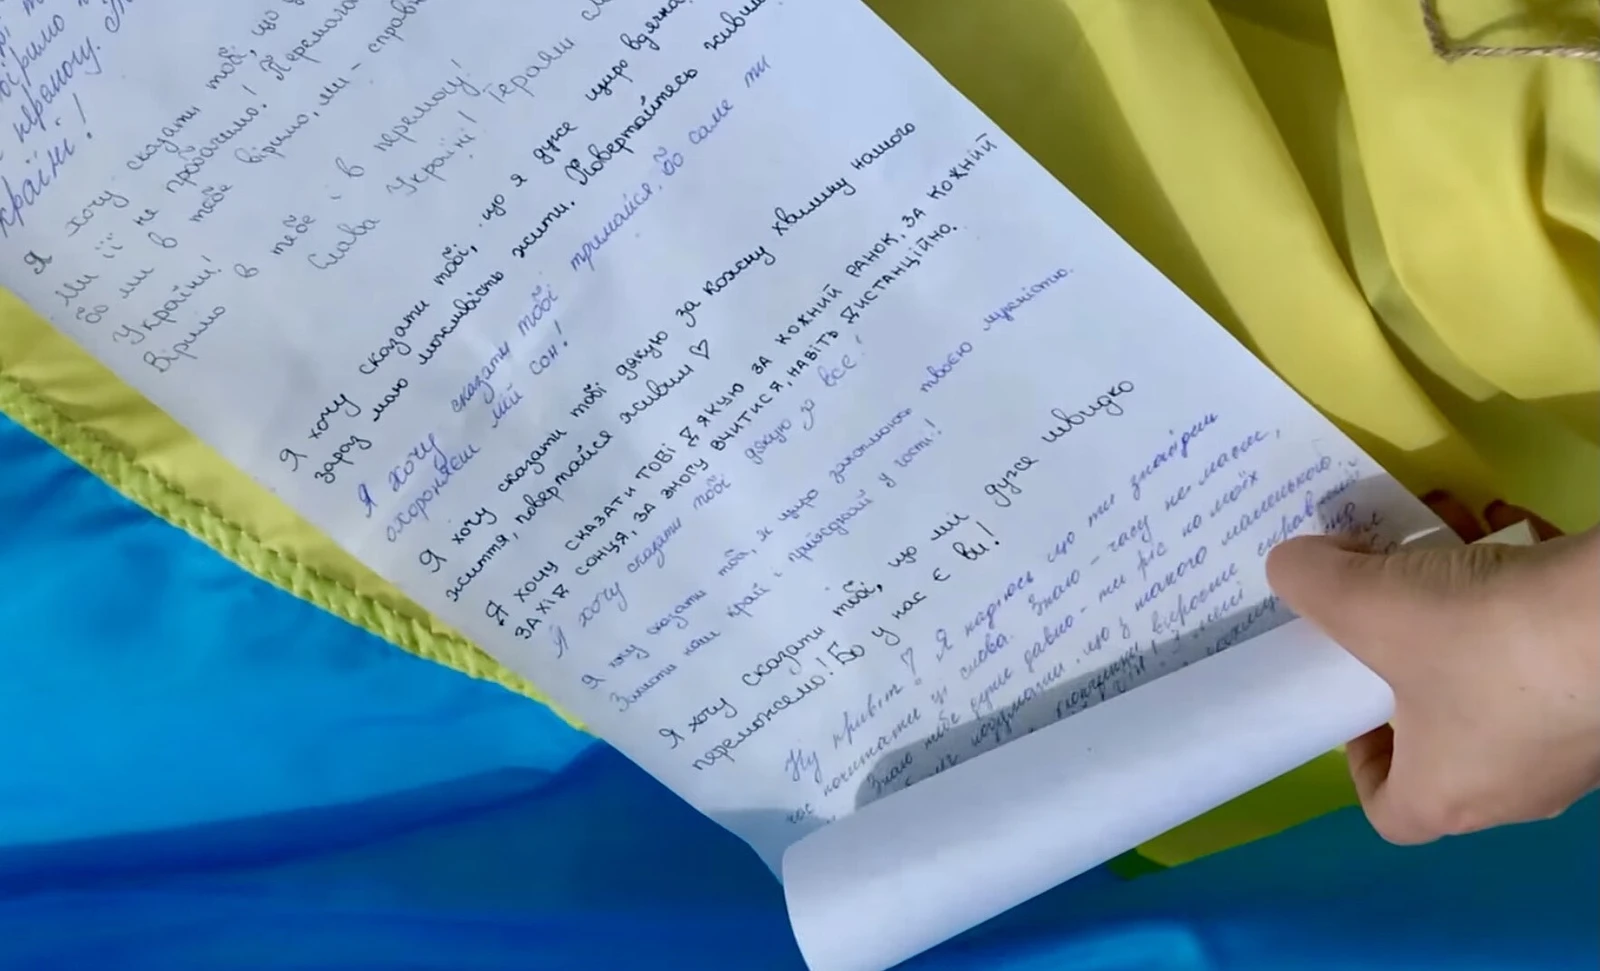 перемогу.
країні!
Я хочу сказати тобі, що
Ми її не пробачимо! Перемога
бо ми в тебе віримо, ми - справ
України!
Віримо в тебе і в перемогу!
Слава Україні! Героям
Я хочу сказати тобі, що я дуже щиро вдячна
зараз маю можливість жити. Повертайтесь живим
Я хочу сказати тобі тримайся, бо саме ти
охороняєш мій сон!
Я хочу сказати тобі дякую за кожну хвилину нашого
життя, повертайся живим ♡
Я хочу сказати тобі дякую за кожний ранок, за кожний
захід сонця, за змогу вчитися, навіть дистанційно.
Я хочу сказати тобі дякую за все!
Я хочу сказати тобі, я щиро захоплююсь твоєю мужністю.
Захисти наш край і приїзджай у гості!
Я хочу сказати тобі, що ми дуже швидко
переможемо! Бо у нас є ви!
Ну привіт! Я надіюсь що ти знайдеш
час почитати ці слова. Знаю - часу не маєш,
Знаю тебе дуже давно - ти ріс на моїх
подумати, що з такого маленького
хлопчика виросте справжній